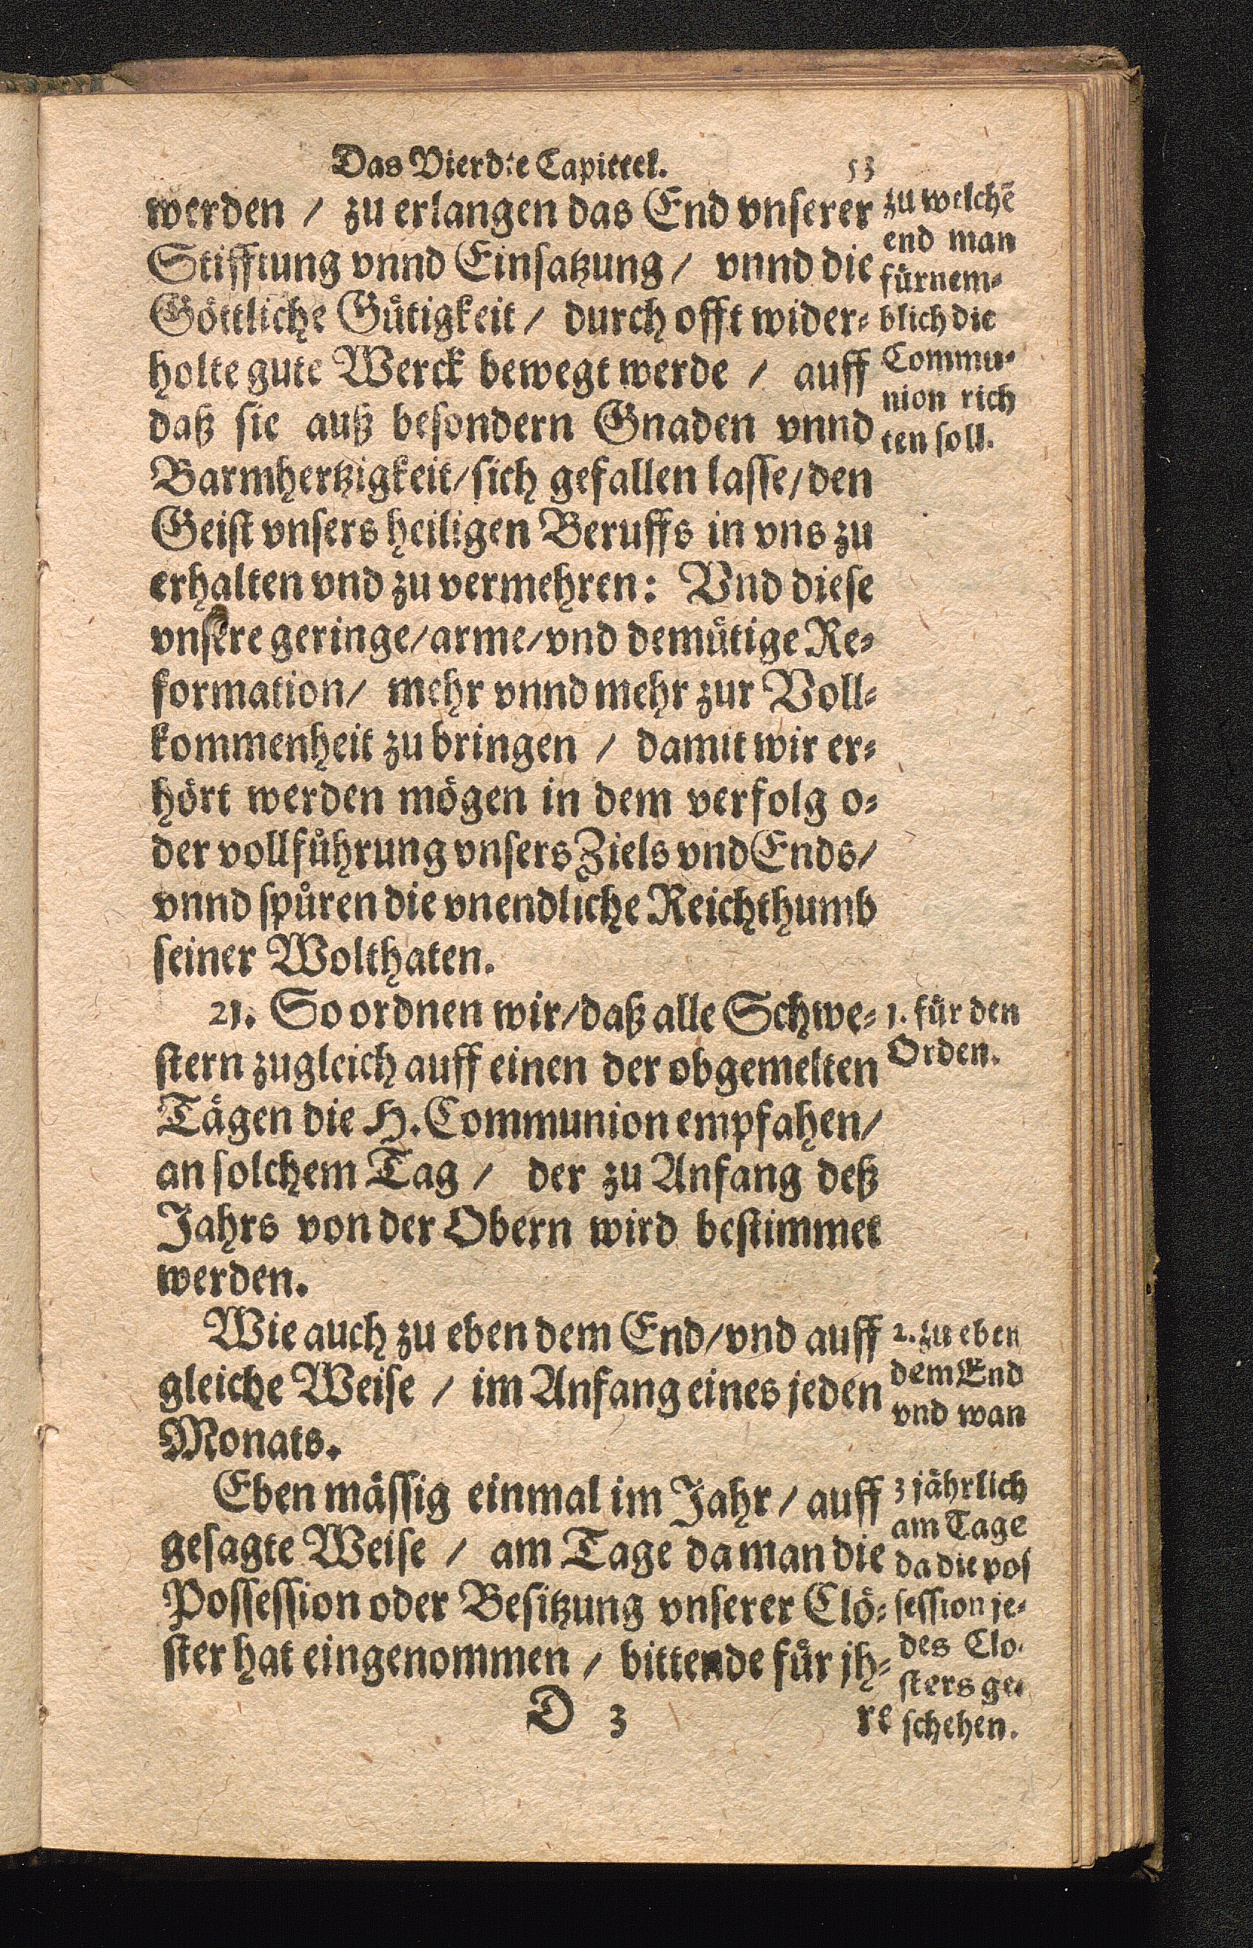 Das Vierdte Capittel. 53
werden / zu erlangen das End vnserer
Stifftung vnnd Einsatzung / vnnd die
Göttliche Gütigkeit / durch offt wider-
holte gute Werck bewegt werde / auff
daß sie auß besondern Gnaden vnnd
Barmhertzigkeit/sich gefallen lasse/den
Geist vnsers heiligen Beruffs in vns zu
erhalten vnd zu vermehren: Vnd diese
vnsere geringe/arme/vnd demütige Re-
formation/ mehr vnnd mehr zur Voll-
kommenheit zu bringen / damit wir er-
hört werden mögen in dem verfolg o-
der vollführung vnsers Ziels vnd Ends/
vnnd spüren die vnendliche Reichthumb
seiner Wolthaten.
zu welchē
end man
fürnem-
blich die
Commu-
nion rich
ten soll.
21. So ordnen wir/daß alle Schwe-
stern zugleich auff einen der obgemelten
Tägen die H. Communion empfahen/
an solchem Tag / der zu Anfang deß
Jahrs von der Obern wird bestimmet
werden.
1. für den
Orden.
Wie auch zu eben dem End/vnd auff
gleiche Weise / im Anfang eines jeden
Monats.
2. zu eben
dem End
vnd wan
Eben mässig einmal im Jahr / auff
gesagte Weise / am Tage da man die
Possession oder Besitzung vnserer Clö-
ster hat eingenommen / bittende für jh-
3 jährlich
am Tage
da die pos
session je-
des Clo-
sters ge-
schehen.
D 3 re